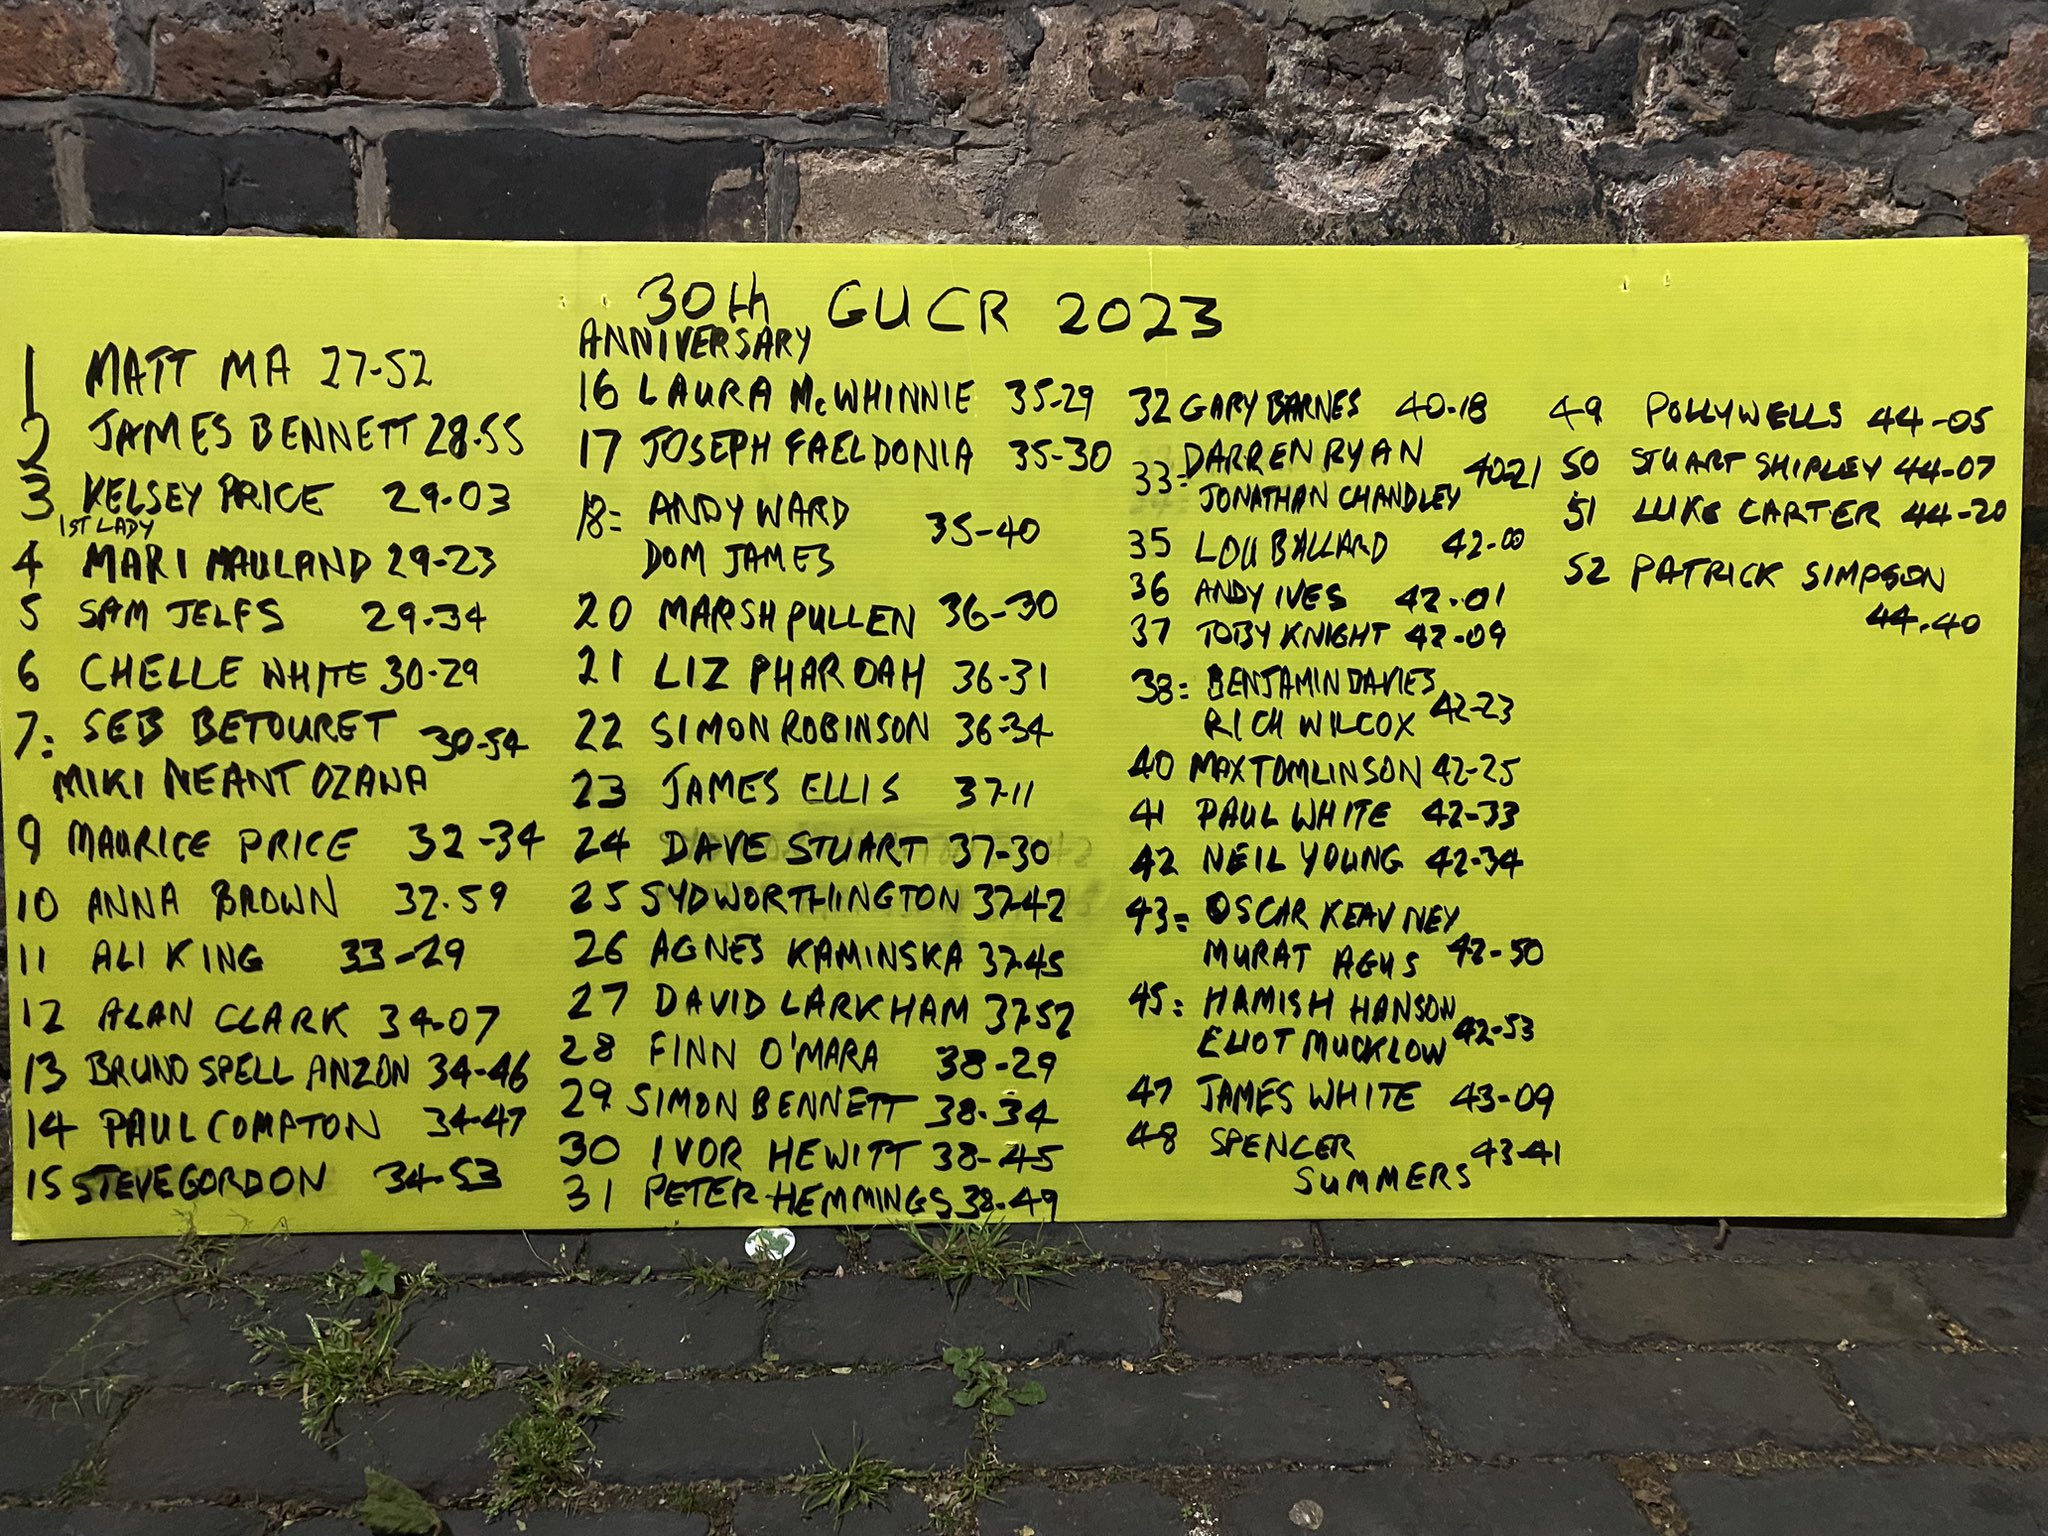 30th GUCR 2023
ANNIVERSARY
1 MATT MA 27-52
2 JAMES BENNETT 28.55
3 KELSEY PRICE 29-03
1ST LADY
4 MARI MAULAND 29-23
5 SAM JELFS 29-34
6 CHELLE WHITE 30-29
7= SEB BETOURET 30-54
MIKI NEANT OZANA
9 MAURICE PRICE 32-34
10 ANNA BROWN 32.59
11 ALI KING 33-29
12 ALAN CLARK 34-07
13 BRUNO SPELL ANZON 34-46
14 PAUL COMPTON 34-47
15 STEVE GORDON 34-53
16 LAURA McWHINNIE 35-29
17 JOSEPH FAELDONIA 35-30
18= ANDY WARD 35-40
DOM JAMES
20 MARSH PULLEN 36-30
21 LIZ PHAROAH 36-31
22 SIMON ROBINSON 36-34
23 JAMES ELLIS 37-11
24 DAVE STUART 37-30
25 SYD WORTHINGTON 37-42
26 AGNES KAMINSKA 37-45
27 DAVID LARKHAM 37-52
28 FINN O'MARA 38-29
29 SIMON BENNETT 38-34
30 IVOR HEWITT 38-45
31 PETER HEMMINGS 38-49
32 GARY BARNES 40-18
33= DARREN RYAN 40-21
JONATHAN CHANDLEY
35 LOU BALLARD 42-00
36 ANDY IVES 42-01
37 TOBY KNIGHT 42-09
38= BENJAMIN DAVIES 42-23
RICH WILCOX
40 MAX TOMLINSON 42-25
41 PAUL WHITE 42-33
42 NEIL YOUNG 42-34
43= OSCAR KEAVNEY
MURAT AGUS 42-50
45= HAMISH HANSON
ELIOT MUCKLOW 42-53
47 JAMES WHITE 43-09
48 SPENCER 43-41
SUMMERS
49 POLLY WELLS 44-05
50 STUART SHIPLEY 44-07
51 LUKE CARTER 44-20
52 PATRICK SIMPSON
44.40